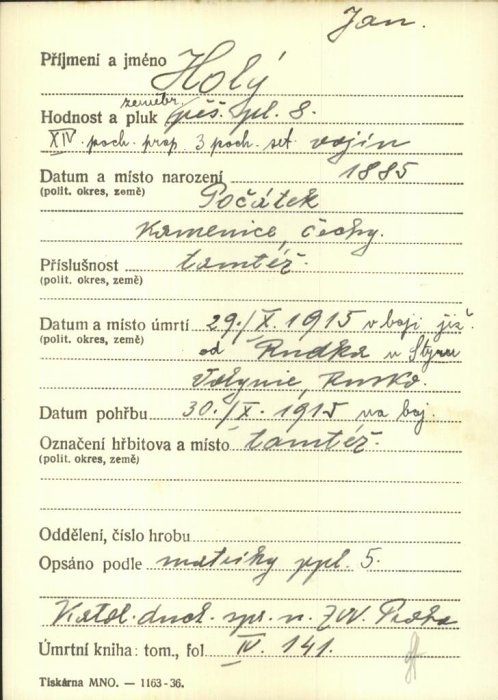 Jan.
Příjmení a jméno Holý
zeměbr.
Hodnost a pluk pěš. pl. 8.
XIV. poch. prap. 3 poch. set. vojín
Datum a místo narození 1885
(polit. okres, země) Počátek
Kamenice, Čechy.
Příslušnost tamtéž.
(polit. okres, země)
Datum a místo úmrtí 29./X. 1915 v boji již.
(polit. okres, země) od Rudka n Styru
Volynie, Rusko.
Datum pohřbu 30./X. 1915 na boj.
Označení hřbitova a místo tamtéž.
(polit. okres, země)
Oddělení, číslo hrobu
Opsáno podle matriky ppl. 5.
Katol. duch. spr. n. ZVV. Praha
Úmrtní kniha: tom., fol IV. 141.
Tiskárna MNO. — 1163-36.